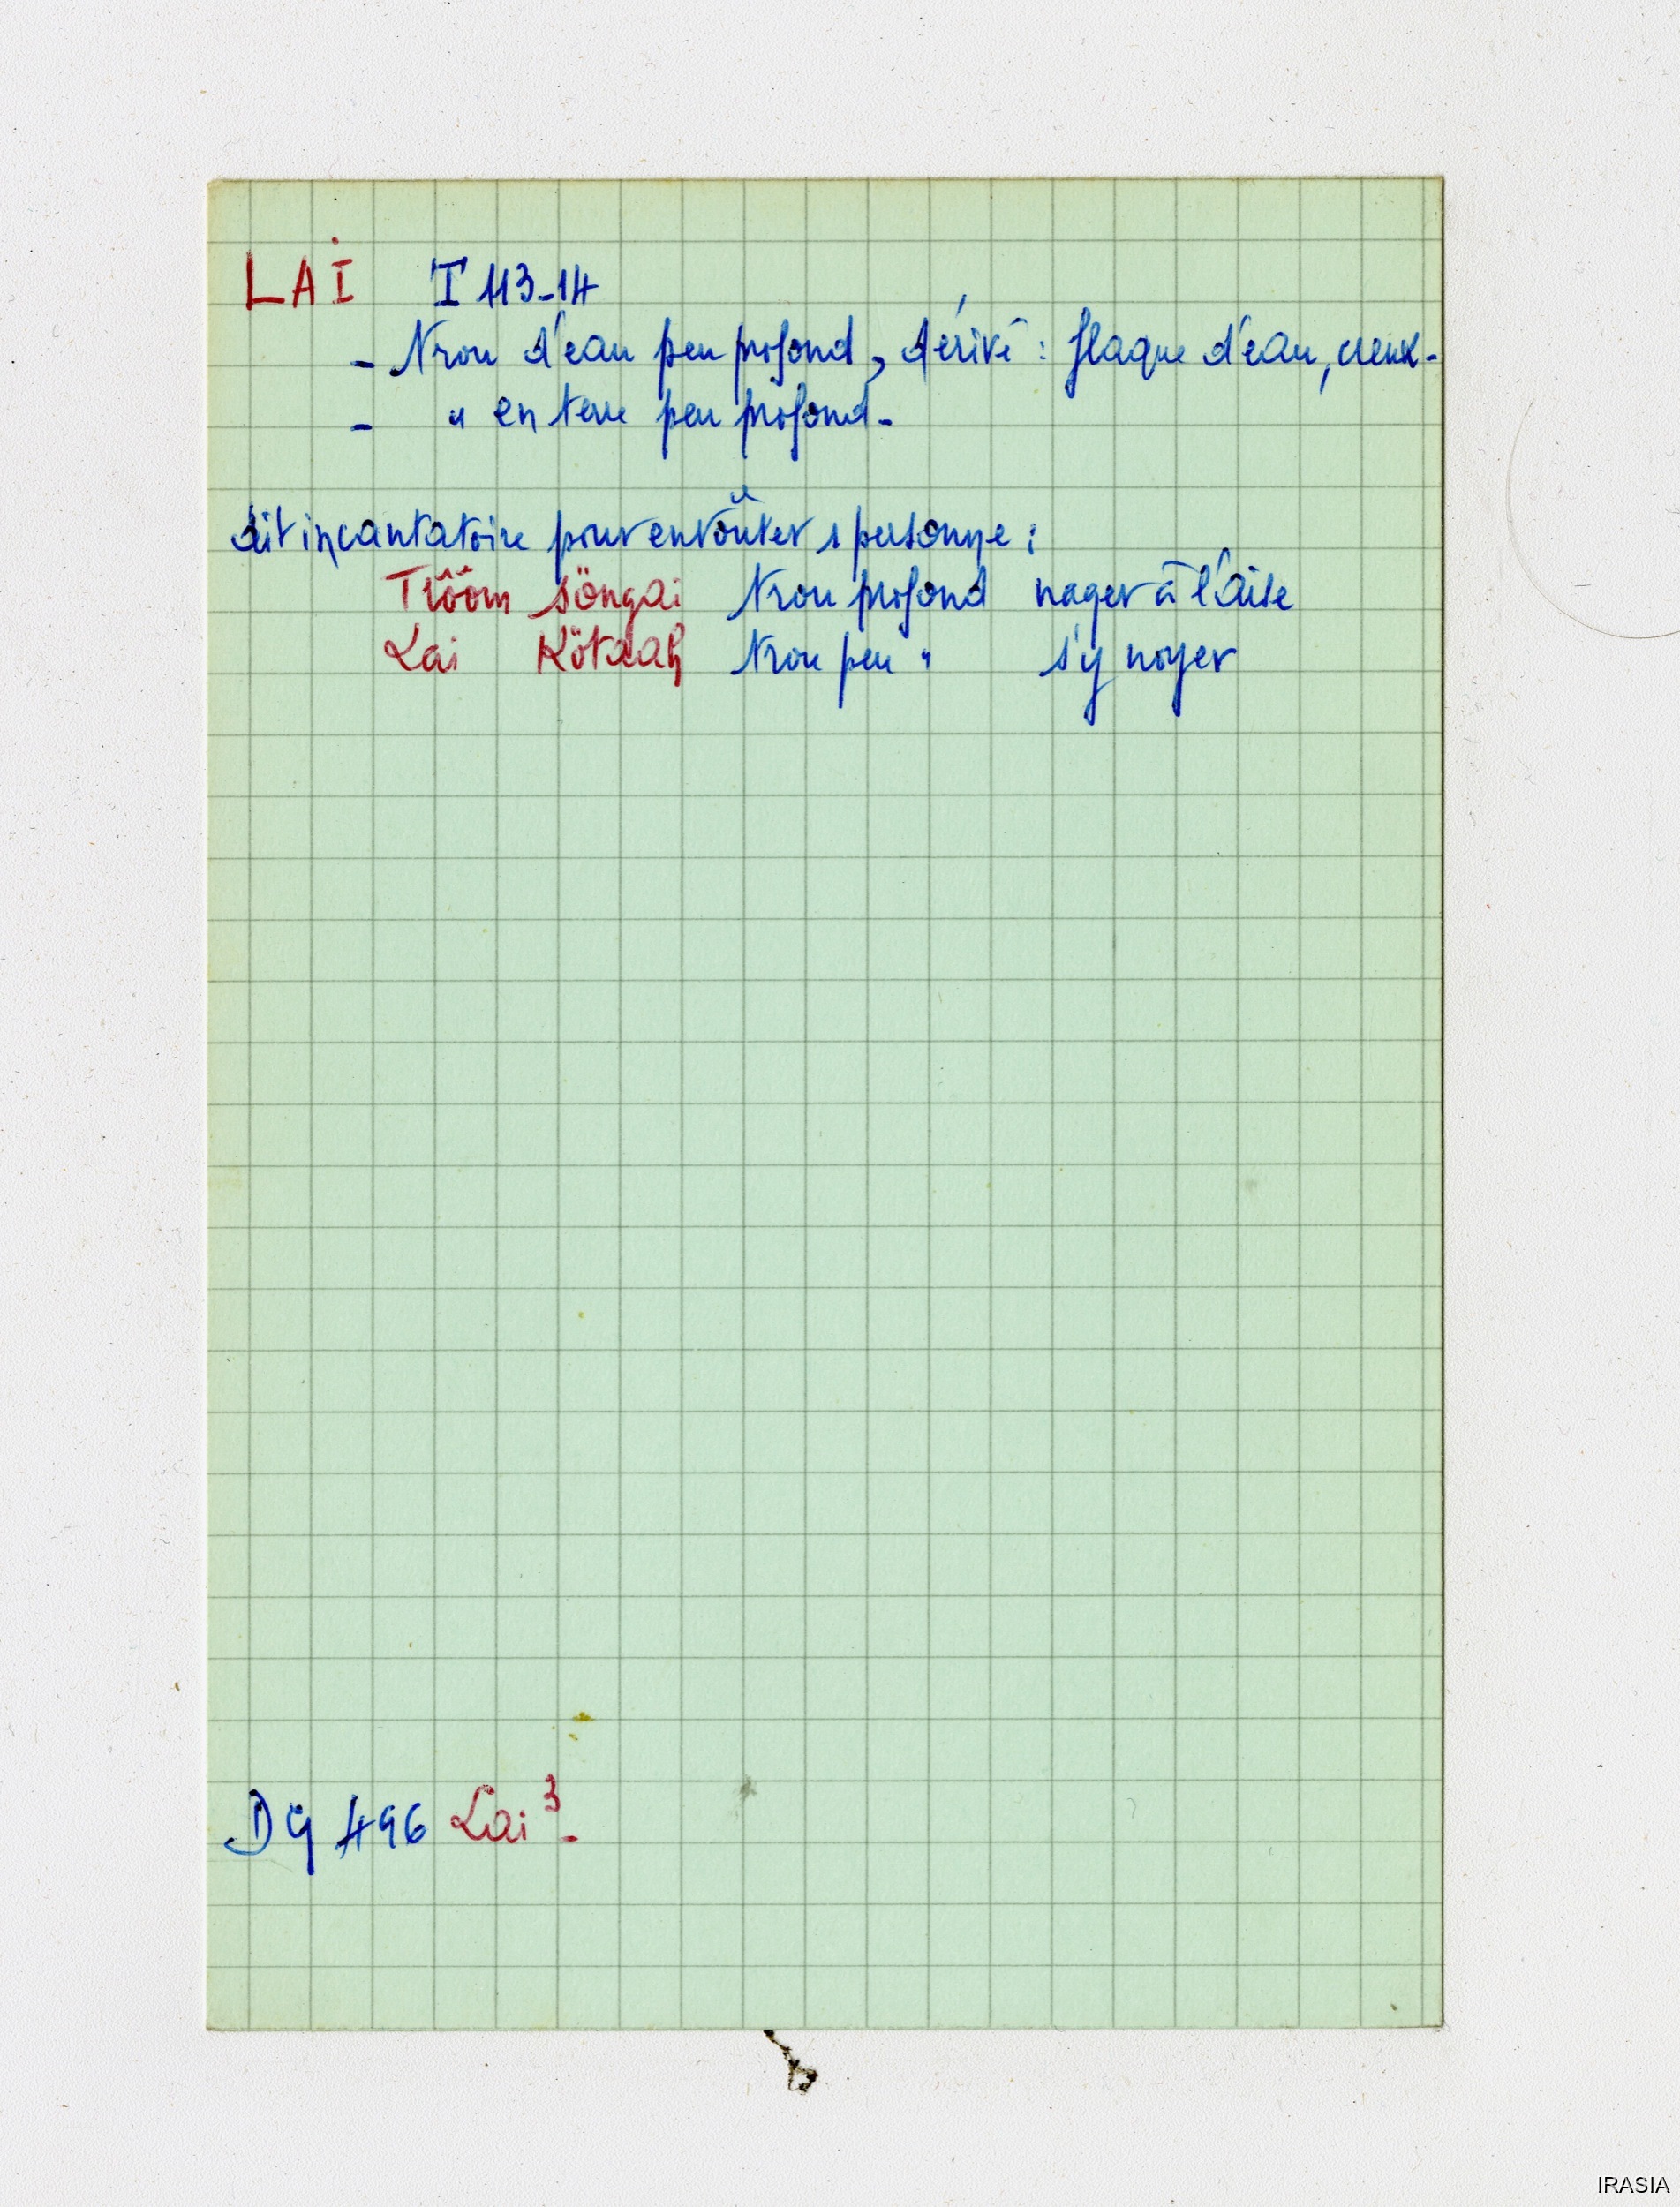 LAI T 113-14
- Trou d'eau peu profond, dérivé : flaque d'eau, creux -
- " en terre peu profond -
dit incantatoire pour envoûter 1 personne :
Trôôm söngai Trou profond nager à l'aise
Lai Kötaah Trou peu " s'y noyer
DG 496 Lai ³ -
IRASIA